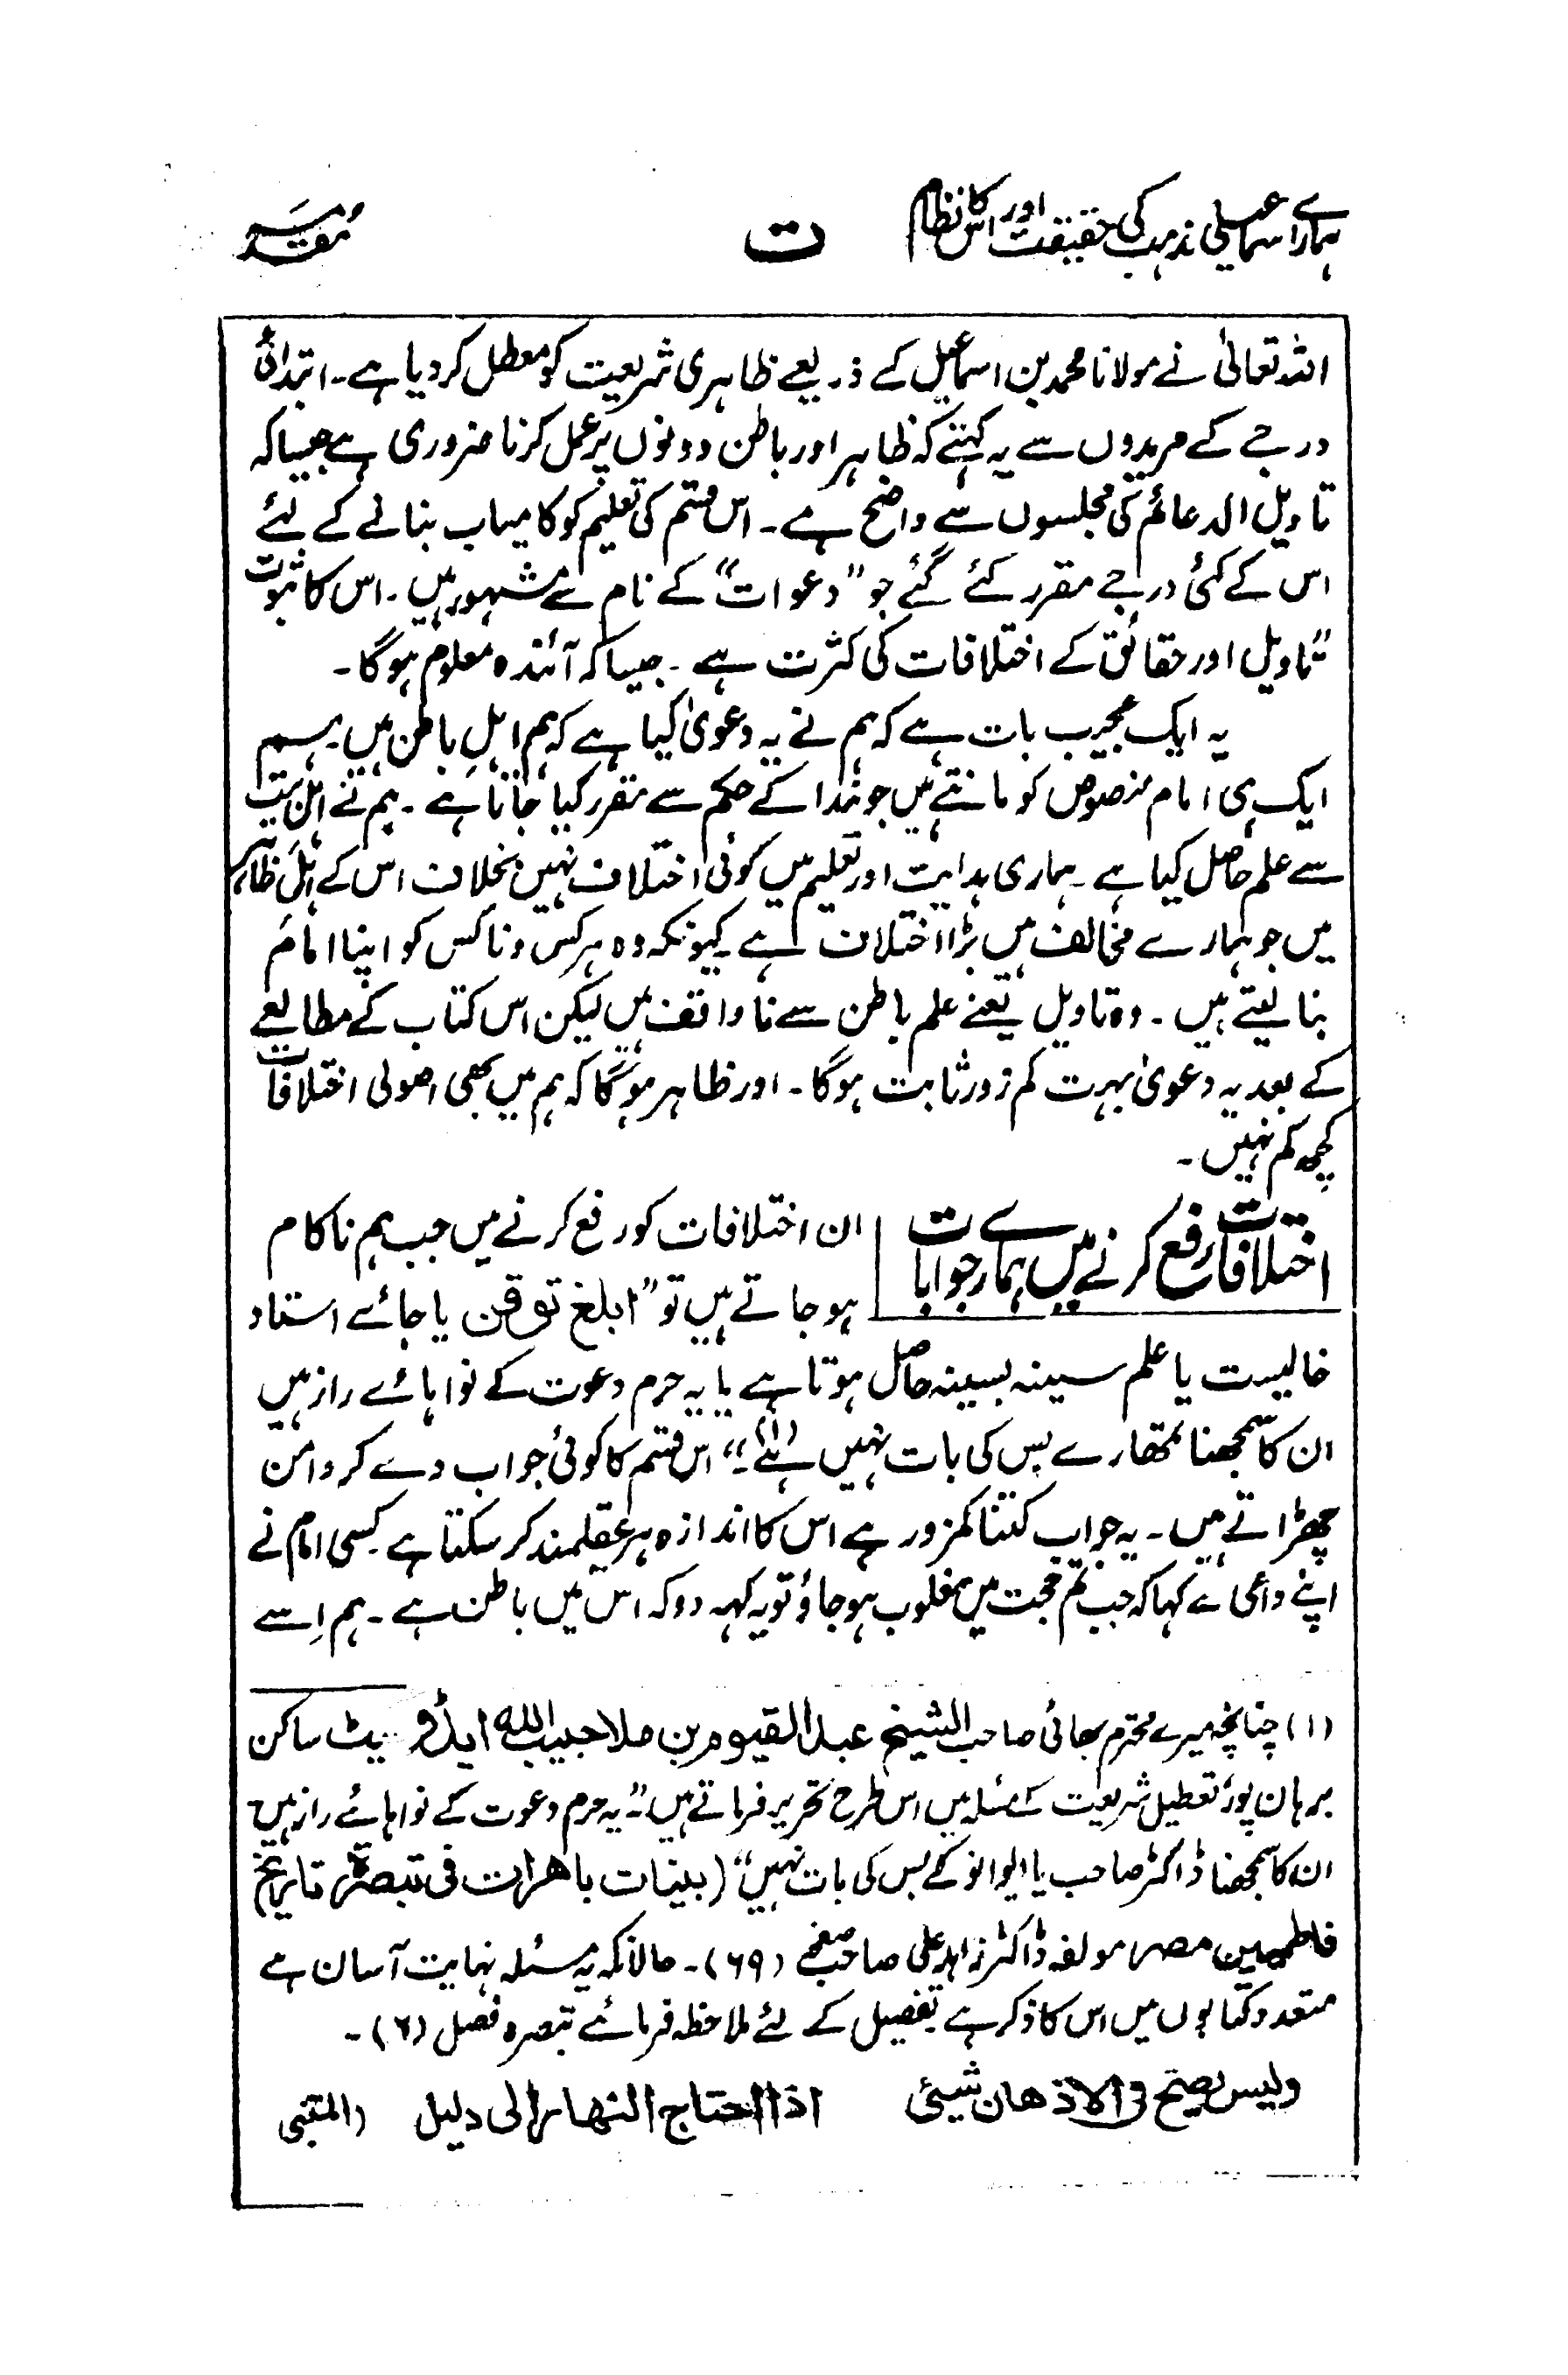 ہمارے اسماعیلی مذہب کی حقیقت اور اس کا نظام
ت
مقدمہ
اللہ تعالیٰ نے مولانا محمد بن اسماعیل کے ذریعے ظاہری شریعت کو معطل کر دیا ہے۔ ابتدائی
درجے کے مریدوں سے یہ کہتے کہ ظاہر اور باطن دونوں پر عمل کرنا ضروری ہے جیسا کہ
تاویل الدعائم کی مجلسوں سے واضح ہے۔ اس قسم کی تعلیم کو کامیاب بنانے کے لئے
اس کے کئی درجے مقرر کئے گئے جو "دعوات" کے نام سے مشہور ہیں۔ اس کا ثبوت
تاویل اور حقائق کے اختلافات کی کثرت ہے۔ جیسا کہ آئندہ معلوم ہوگا۔
یہ ایک عجیب بات ہے کہ ہم نے یہ دعویٰ کیا ہے کہ ہم اہلِ باطن ہیں۔ ہم
ایک ہی امام منصوص کو مانتے ہیں جو خدا کے حکم سے مقرر کیا جاتا ہے۔ ہم نے اہل بیت
سے علم حاصل کیا ہے۔ ہماری ہدایت اور تعلیم میں کوئی اختلاف نہیں بخلاف اس کے اہل ظاہر
میں جو ہمارے مخالف ہیں بڑا اختلاف ہے۔ کیونکہ وہ ہرکس و ناکس کو اپنا امام
بنا لیتے ہیں۔ وہ تاویل یعنے علم باطن سے ناواقف ہیں لیکن اس کتاب کے مطالعے
کے بعد یہ دعویٰ بہت کم زور ثابت ہوگا۔ اور ظاہر ہوگا کہ ہم میں بھی اصولی اختلافات
کچھ کم نہیں۔
اختلافات رفع کرنے میں ہمارے جوابات
ان اختلافات کو رفع کرنے میں جب ہم ناکام
ہو جاتے ہیں تو "ابلغ توقن یا جائے استاد
خالیست یا علم سینہ بسینہ حاصل ہوتا ہے یا یہ حرم دعوت کے نواہائے راز ہیں
ان کا سمجھنا تمھارے بس کی بات نہیں ہے(۱)۔" اس قسم کا کوئی جواب دے کر دامن
چھڑاتے ہیں۔ یہ جواب کتنا کمزور ہے اس کا اندازہ ہر عقلمند کر سکتا ہے۔ کسی امام نے
اپنے داعی سے کہا کہ جب تم حجت میں مغلوب ہو جاؤ تو یہ کہہ دو کہ اس میں باطن ہے۔ ہم اِسے
(۱) چنانچہ میرے محترم بھائی صاحب الشیخ عبد القیوم بن ملا حبیب اللہ ایڈوکیٹ ساکن
برہان پور تعطیل شریعت کے مسئلہ میں اس طرح تحریر فرماتے ہیں:۔ "یہ حرم دعوت کے نواہائے راز ہیں
ان کا سمجھنا ڈاکٹر صاحب یا ایوانو کے بس کی بات نہیں" (بینات باھرات فی تبصرۃ تاریخ
فاطمیین مصر مولفہ ڈاکٹر زاہد علی صاحب صفحے (۶۹)۔ حالانکہ یہ مسئلہ نہایت آسان ہے
متعدد کتابوں میں اس کا ذکر ہے تفصیل کے لئے ملاحظہ فرمائے تبصرہ فصل (۶)۔
ولیس یصح فی الاذھان شیئ اذا احتاج النھار الی دلیل (المتنبی